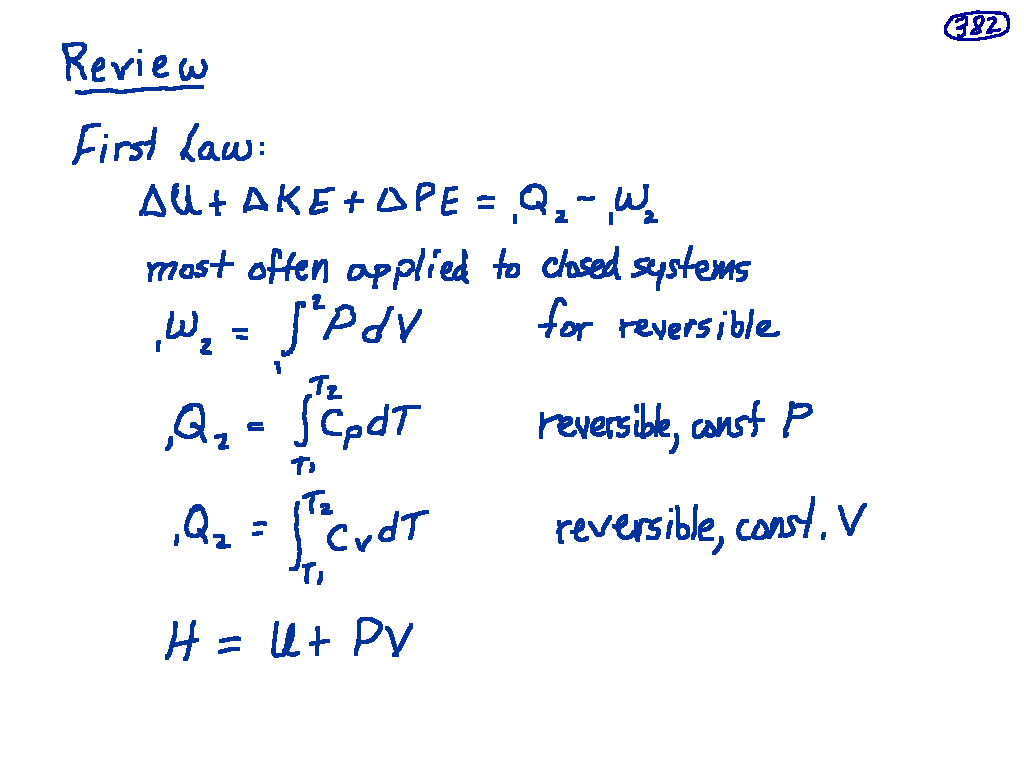 382
Review
First Law:
ΔU + ΔKE + ΔPE = ₁Q₂ - ₁W₂
most often applied to closed systems
₁W₂ = ∫₁² P dV for reversible
₁Q₂ = ∫_T₁^T₂ C_P dT reversible, const P
₁Q₂ = ∫_T₁^T₂ C_V dT reversible, const. V
H = U + PV